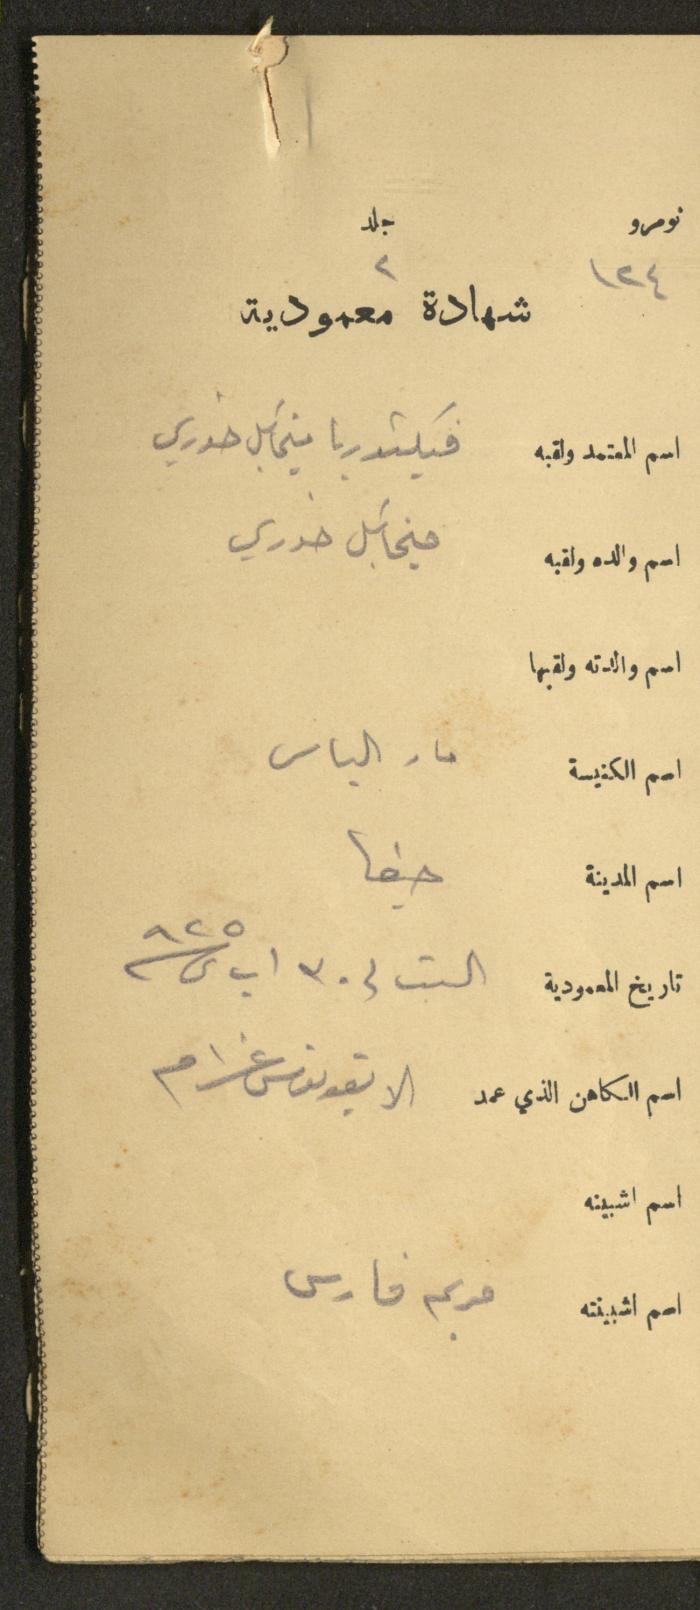 نومرو جلد
١٢٤ ٢
شهادة معمودية
اسم المعتمد ولقبه فيكتوريا ميخائيل خوري
اسم والده ولقبه ميخائيل خوري
اسم والدته ولقبها
اسم الكنيسة مار الياس
اسم المدينة حيفا
تاريخ المعمودية السبت في ٣٠ اب سنة ٩٢٥
اسم الكاهن الذي عمد
اسم اشبينه
اسم اشبينته مريم فارس